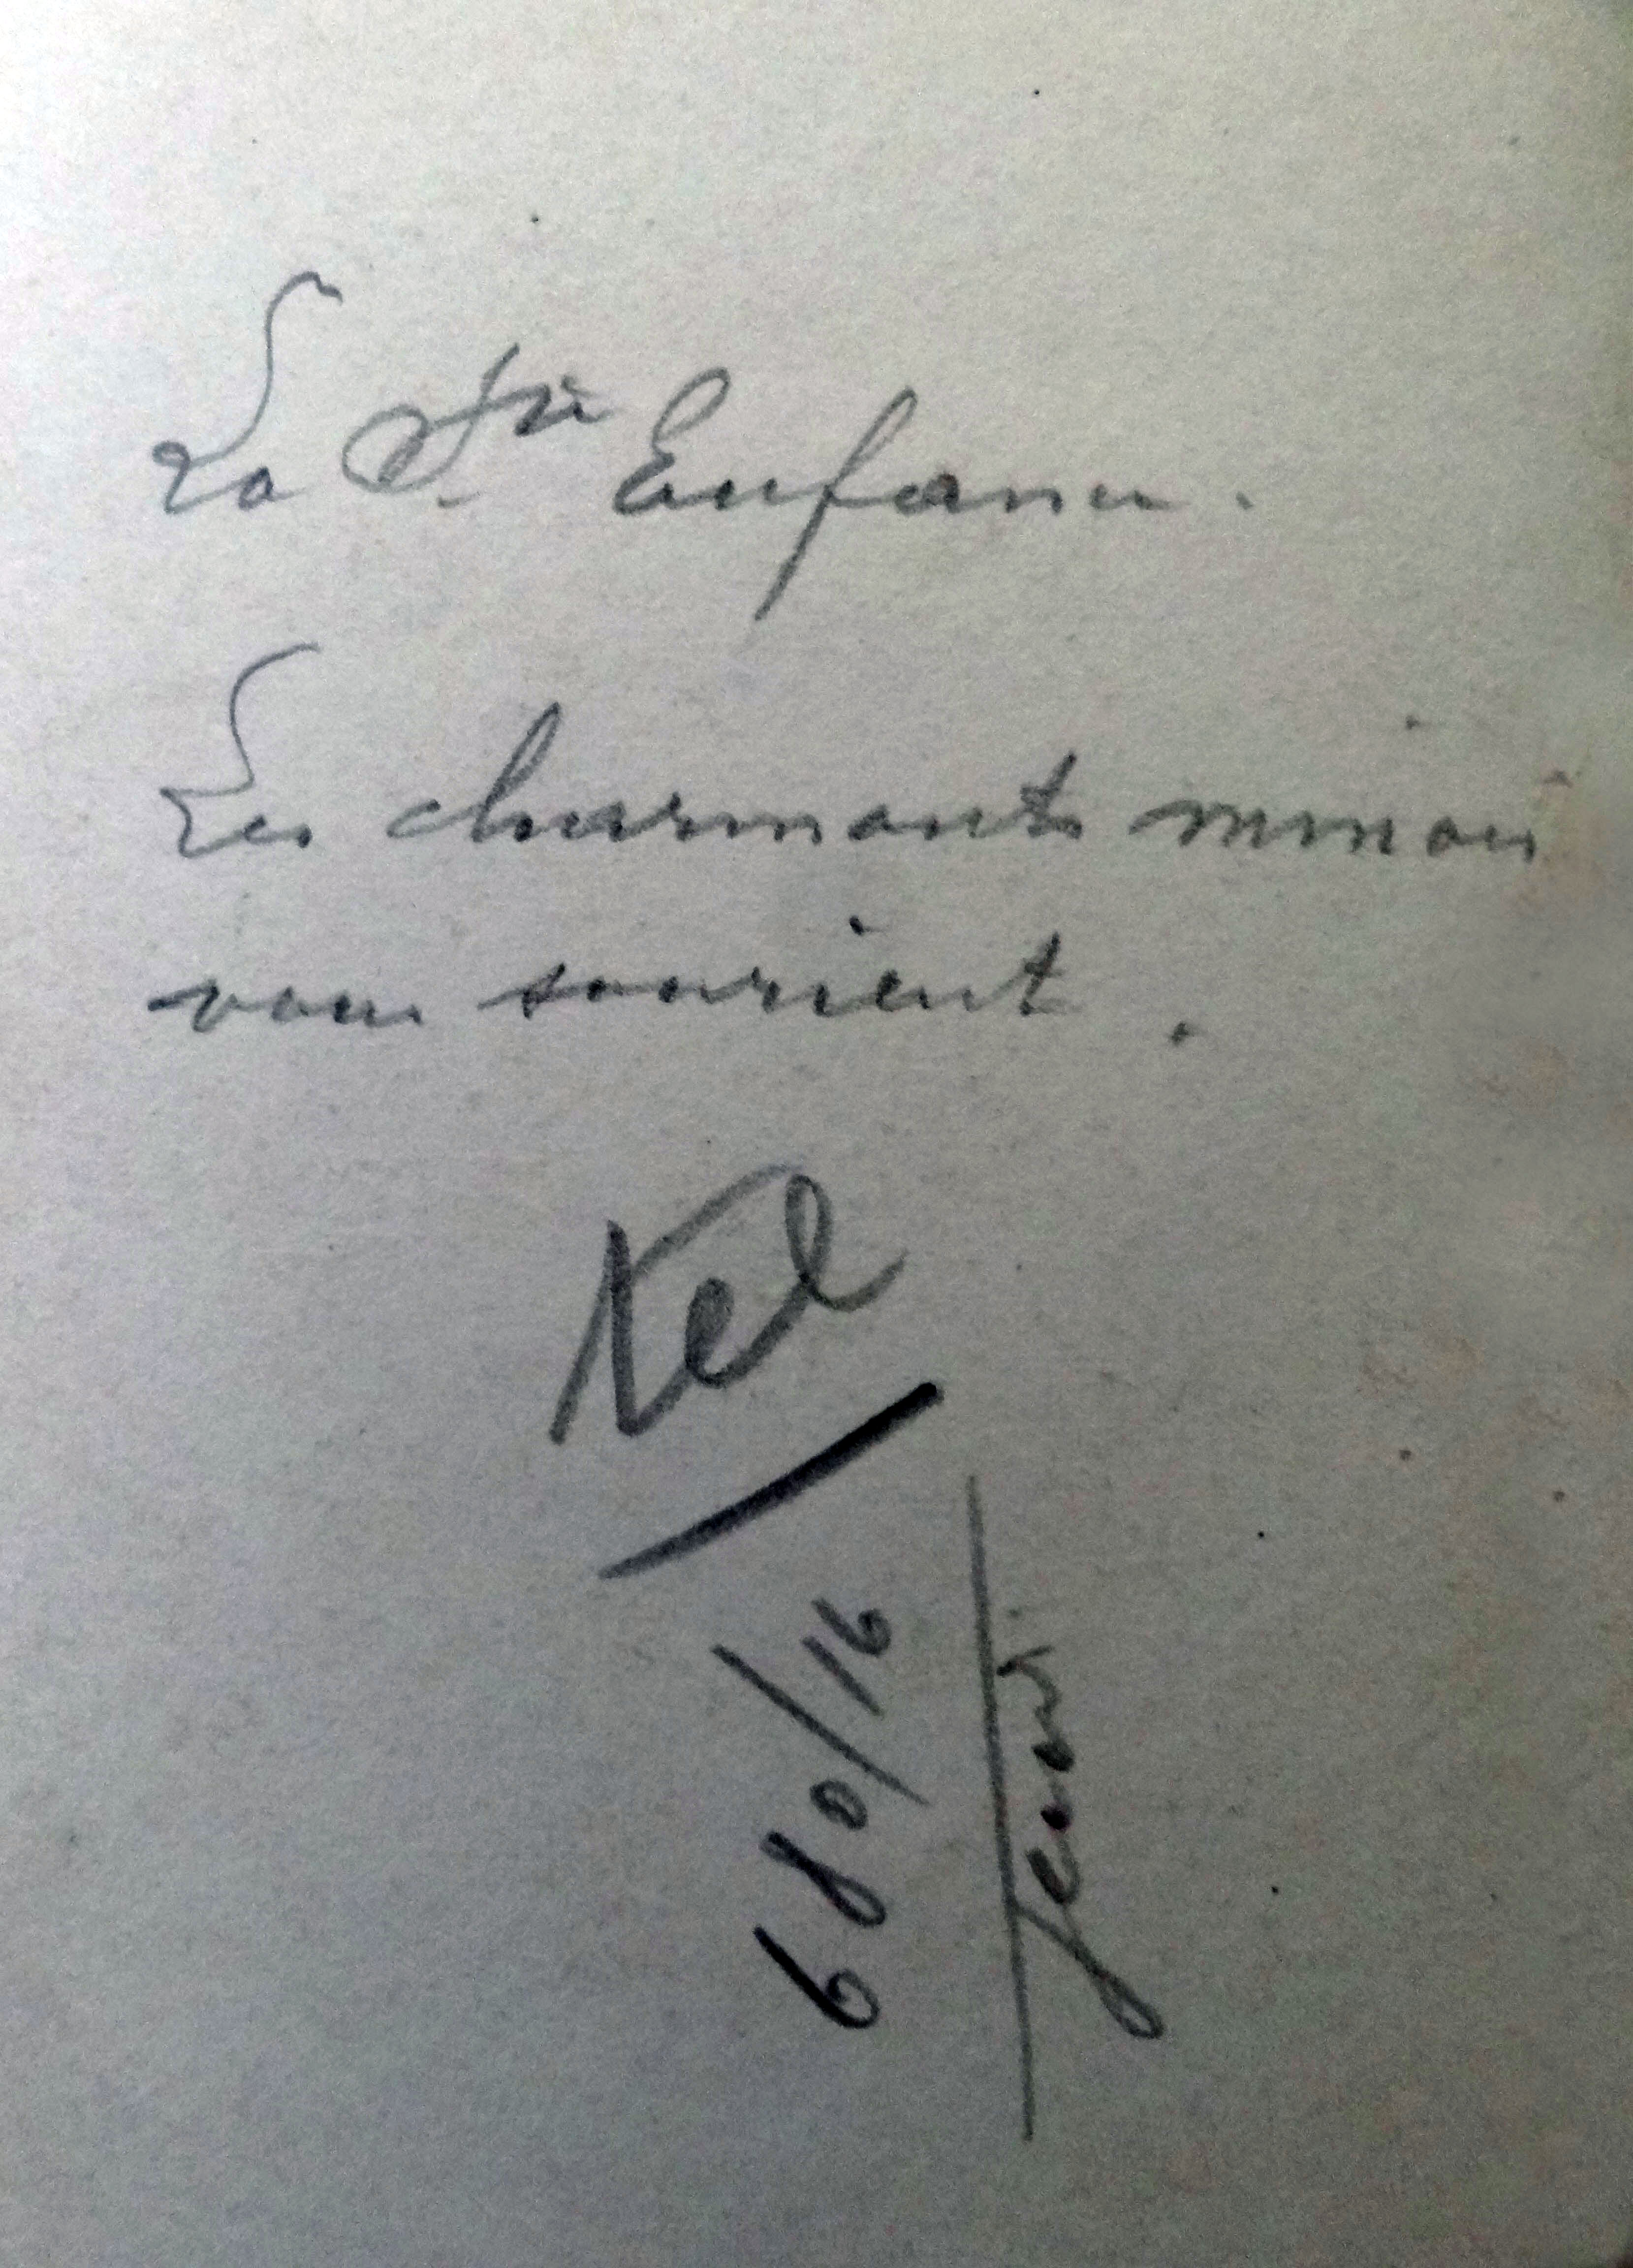 La Ste Enfance.
Les charmants minois
vous sourient.
tel
680/16